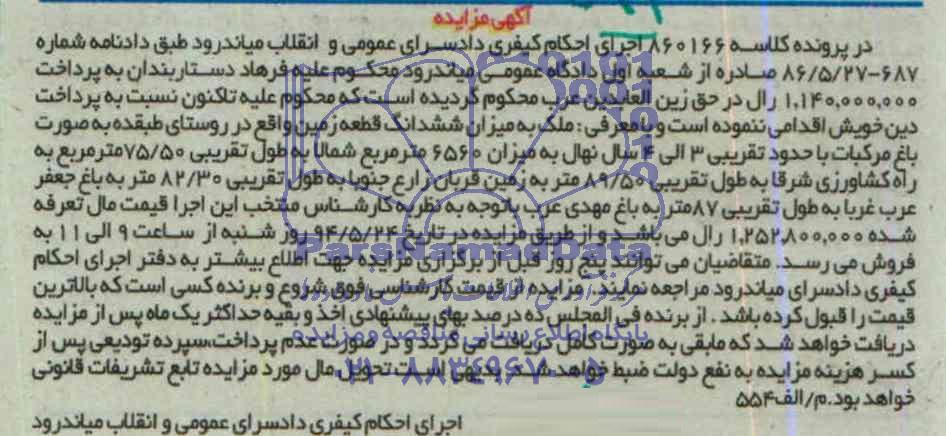 آگهی مزایده
در پرونده کلاسه ۸۶۰۱۶۶ اجرای احکام کیفری دادسرای عمومی و انقلاب میاندرود طبق دادنامه شماره
۶۸۷-۸۶/۵/۲۷ صادره از شعبه اول دادگاه عمومی میاندرود محکوم علیه فرهاد دستاربندان به پرداخت
۱,۱۴۰,۰۰۰,۰۰۰ رال در حق زین العابدین عرب محکوم گردیده است که محکوم علیه تاکنون نسبت به پرداخت
دین خویش اقدامی ننموده است و با معرفی: ملک به میزان ششدانگ قطعه زمین واقع در روستای طبقده به صورت
باغ مرکبات با حدود تقریبی ۳ الی ۴ سال نهال به میزان ۶۵۶۰ مترمربع شمالا به طول تقریبی ۷۵/۵۰مترمربع به
راه کشاورزی شرقا به طول تقریبی ۸۹/۵۰ متر به زمین قربان زارع جنوبا به طول تقریبی ۸۲/۳۰ متر به باغ جعفر
عرب غربا به طول تقریبی ۸۷متر به باغ مهدی عرب باتوجه به نظریه کارشناس منتخب این اجرا قیمت مال تعرفه
شده ۱,۲۵۲,۸۰۰,۰۰۰ رال می باشد و از طریق مزایده در تاریخ ۹۴/۵/۲۴ روز شنبه از ساعت ۹ الی ۱۱ به
فروش می رسد. متقاضیان می توانند پنج روز قبل از برگزاری مزایده جهت اطلاع بیشتر به دفتر اجرای احکام
کیفری دادسرای میاندرود مراجعه نمایند. مزایده از قیمت کارشناسی فوق شروع و برنده کسی است که بالاترین
قیمت را قبول کرده باشد. از برنده فی المجلس ده درصد بهای پیشنهادی اخذ و بقیه حداکثر یک ماه پس از مزایده
دریافت خواهد شد که مابقی به صورت کامل دریافت می گردد و در صورت عدم پرداخت،سپرده تودیعی پس از
کسر هزینه مزایده به نفع دولت ضبط خواهد شد. بدیهی است تحویل مال مورد مزایده تابع تشریفات قانونی
خواهد بود.م/الف۵۵۴
اجرای احکام کیفری دادسرای عمومی و انقلاب میاندرود
ParsNamadData
پایگاه اطلاع رسانی مناقصه و مزایده
۰۲۱-۸۸۳۴۹۶۷۰-۵